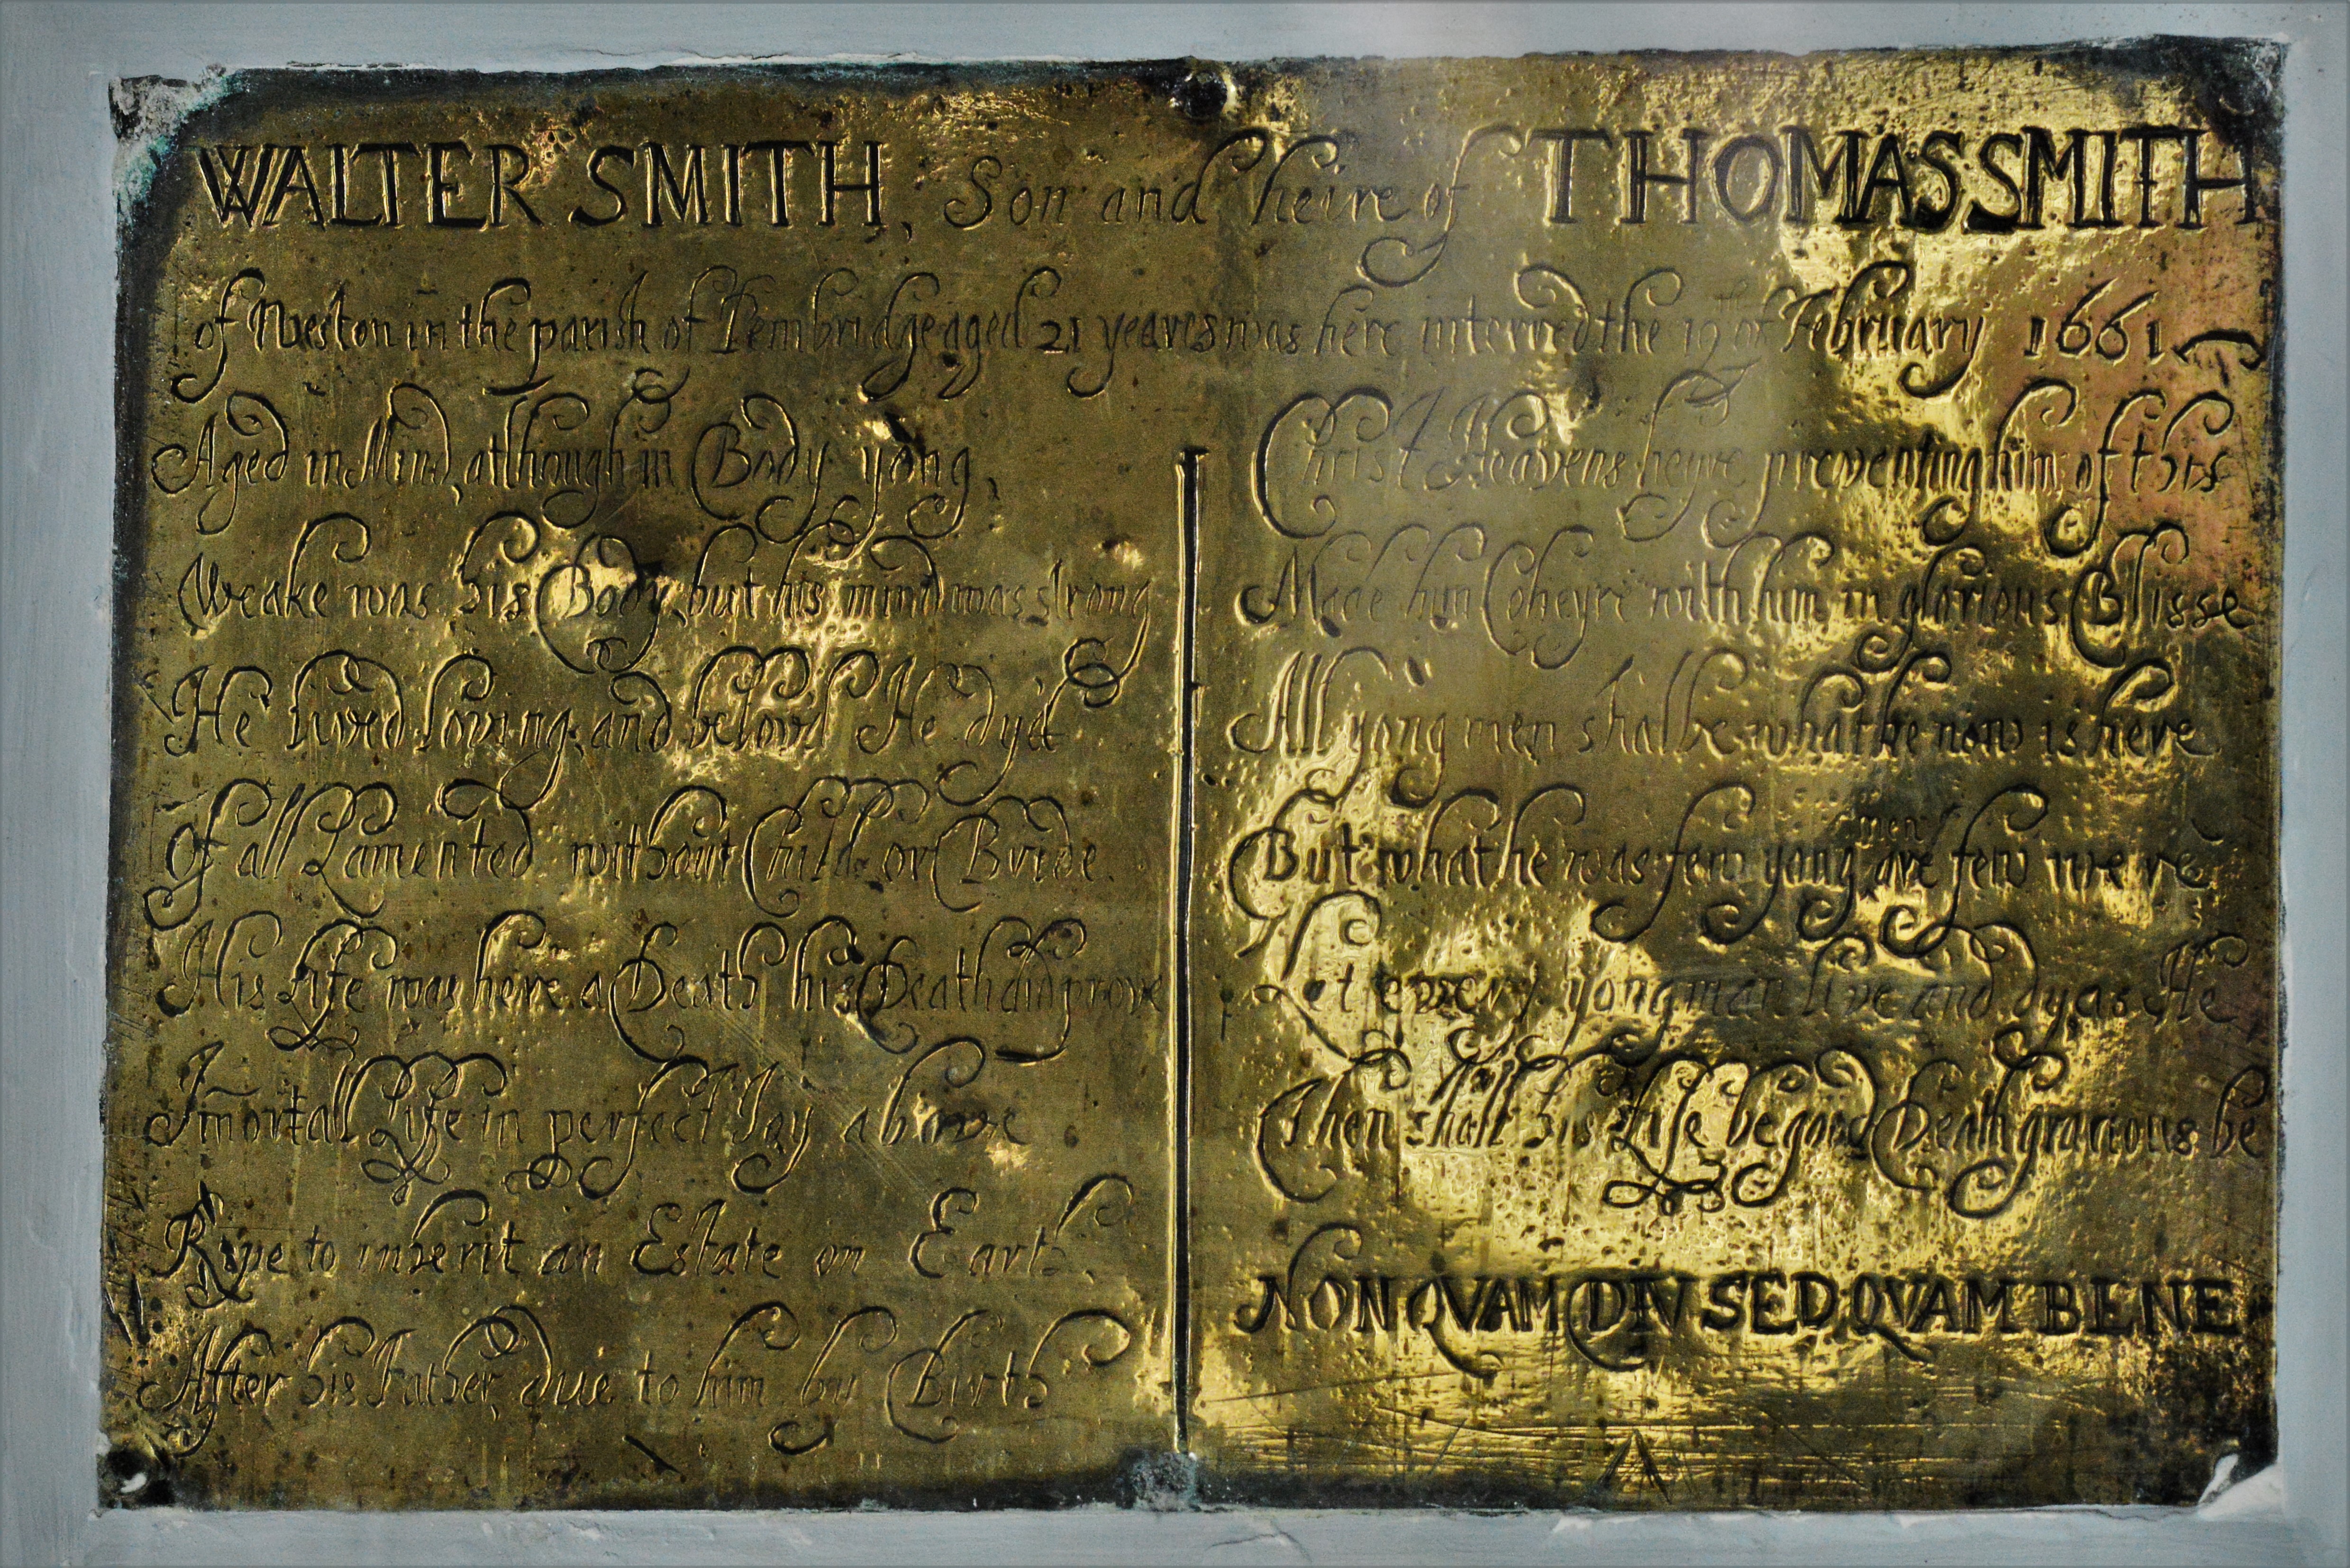 WALTER SMITH, Son and heire of THOMAS SMITH
of Weston in the parish of Pembridge aged 21 yeares was here interred the 19th of February 1661
Aged in Mind, although in Body yong,
Weake was his Body, but his mind was strong
He lived loving, and belovd He dyd
Of all Lamented without Child, or Bride.
His Life was here a Death his Death did prove
Im̄ortall Life in perfect Joy above
Ripe to inherit an Estate on Earth,
After his Father, due to him by Birth
Christ Heavens heyre preventing him of this
Made him Coheyre with him in glorious Blisse
All yong men shall be what he now is here
But what he was few yong men are few were
Let every yong man live and dy as He
Then shall his Life be good Death gracious be
NON QVAM DIV SED QVAM BENE